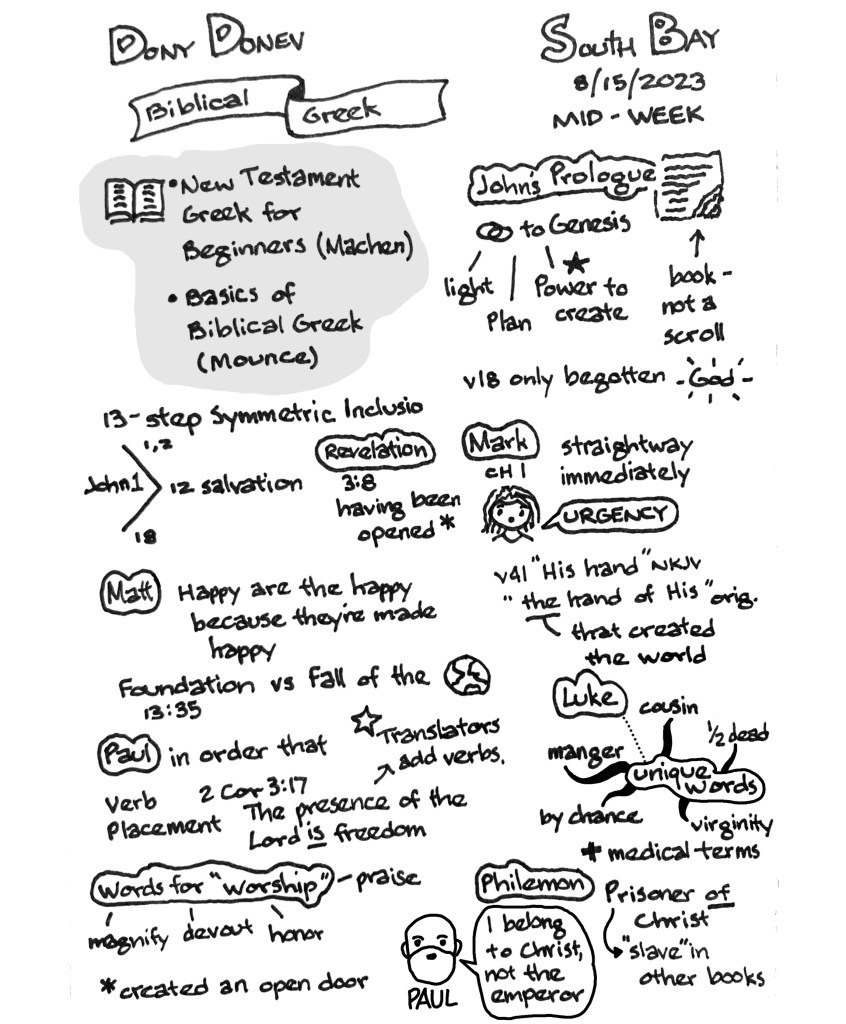 Dony Donev
Biblical Greek
South Bay
8/15/2023
Mid-Week
• New Testament
Greek for
Beginners (Machen)
• Basics of
Biblical Greek
(Mounce)
John's Prologue
to Genesis
light
Plan
Power to
create
book-
not a
scroll
v18 only begotten -God-
13-step Symmetric Inclusio
John 1
1,2
12 salvation
18
Revelation
3:8
having been
opened *
Mark
CH 1
straightway
immediately
URGENCY
v41 "His hand" NKJV
"the hand of His" orig.
that created
the world
Matt
Happy are the happy
because they're made
happy
Foundation vs Fall of the
13:35
Paul
in order that
Translators
add verbs.
Verb
Placement
2 Cor 3:17
The presence of the
Lord is freedom
Luke
cousin
1/2 dead
manger
unique
words
by chance
virginity
+ medical terms
Words for "Worship" - praise
magnify
devout
honor
* created an open door
Philemon
Prisoner of
Christ
"slave" in
other books
I belong
to Christ,
not the
emperor
PAUL